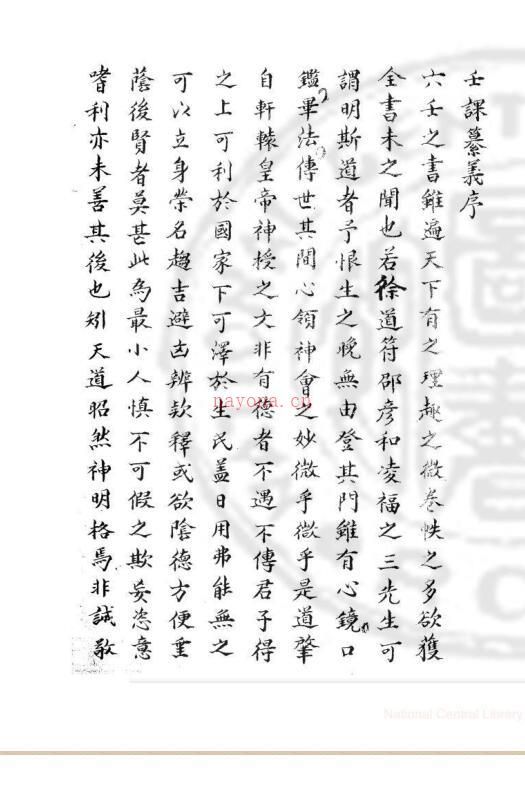 壬課纂義序
六壬之書雖遍天下有之理趣之微卷帙之多欲獲
全書未之聞也若徐道符邵彥和凌福之三先生可
謂明斯道者予恨生之晚無由登其門雖有心鏡口
鑑畢法傳世其間心領神會之妙微乎微乎是道肇
自軒轅皇帝神授之文非有德者不遇不傳君子得
之上可利於國家下可澤於生民盖日用弗能無之
可以立身榮名趨吉避凶辨欵釋或欲陰德方便重
蔭後賢者莫甚此為最小人慎不可假之欺妄恣意
嗜利亦未善其後也矧天道昭然神明格焉非誠敬
payona.cn
National Central Library